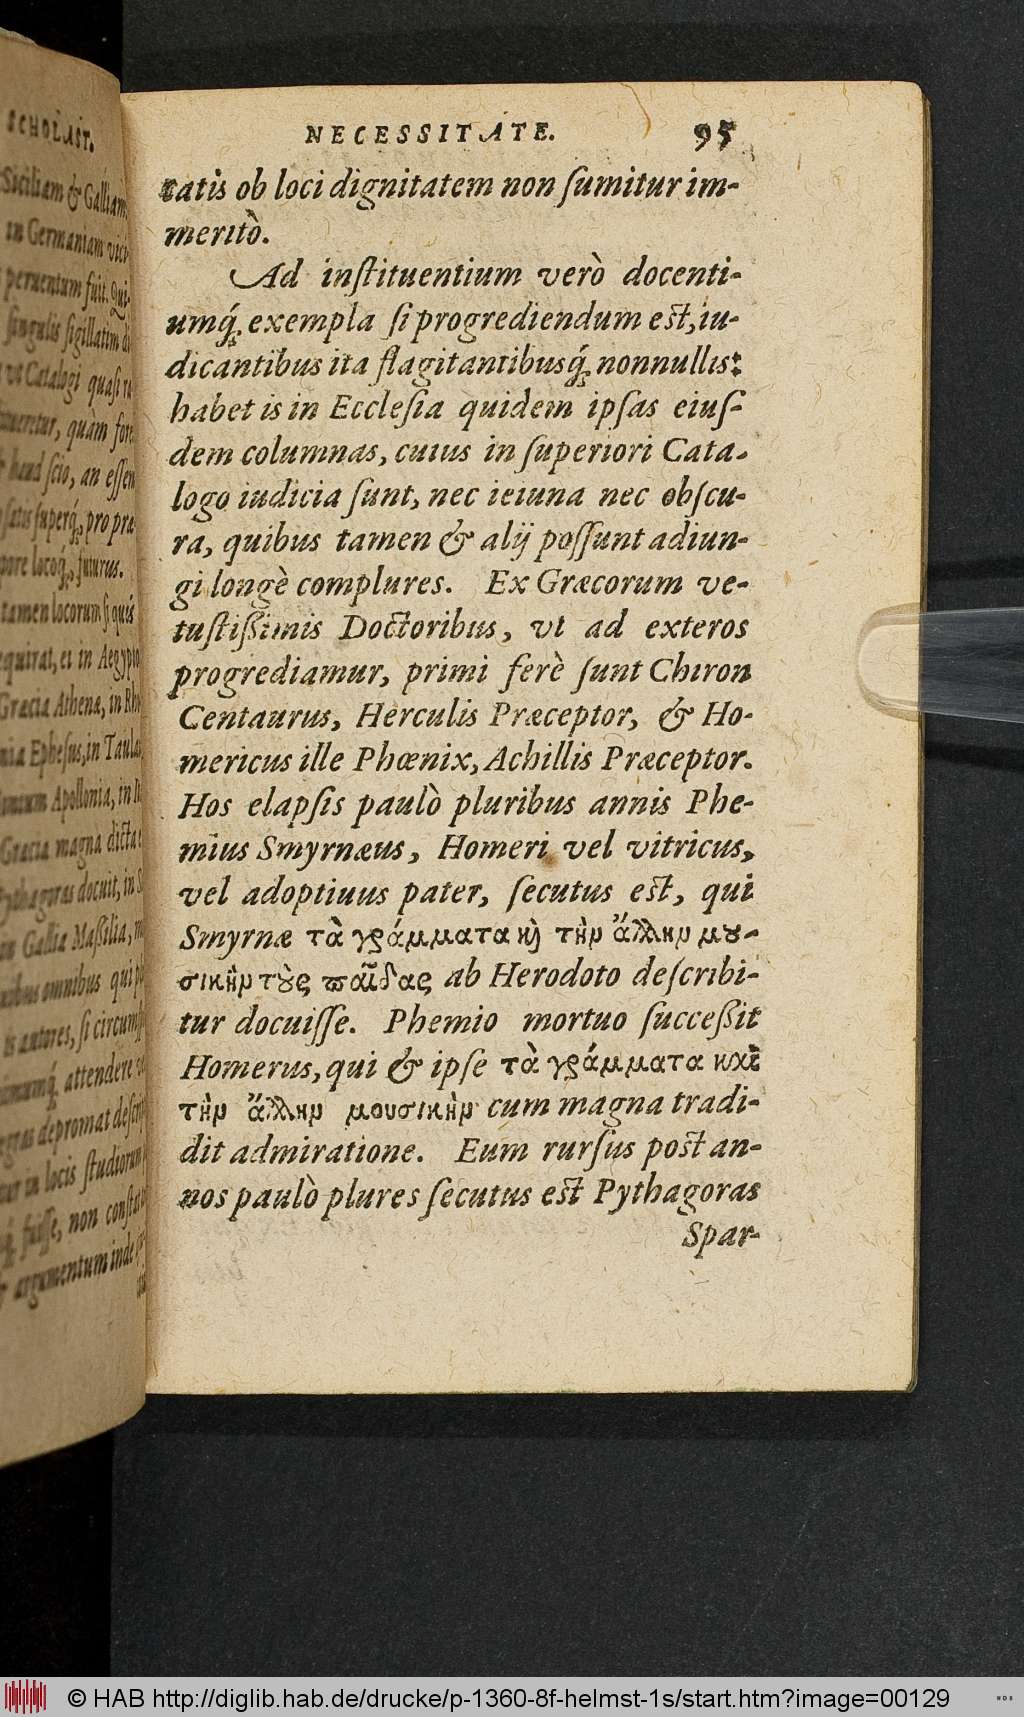 SCHOLAST.
Siciliam & Galliam
in Germaniam
peruentum fuit. Qui-
singulis sigillatim di
Catalogi quasi
quàm fore
haud scio, an essen
superq́;, pro præ
locoq́;, futurus.
tamen locorum si quis
et in Aegypto
Græcia Athenæ, in Rh
Ephesus, in
Apollonia, in
Græcia magna dicta
docuit, in
Gallia Maßilia,
omnibus qui
autores, si
attendere
depromat
in locis studiorum
fuisse, non
argumentum inde
NECESSITATE. 95
tatis ob loci dignitatem non sumitur im-
meritò.
Ad instituentium verò docenti-
umq́; exempla si progrediendum est, iu-
dicantibus ita flagitantibusq́; nonnullis:
habetis in Ecclesia quidem ipsas eius-
dem columnas, cuius in superiori Cata-
logo iudicia sunt, nec ieiuna nec obscu-
ra, quibus tamen & alij possunt adiun-
gi longè complures. Ex Græcorum ve-
tustißimis Doctoribus, vt ad exteros
progrediamur, primi ferè sunt Chiron
Centaurus, Herculis Præceptor, & Ho-
mericus ille Phœnix, Achillis Præceptor.
Hos elapsis paulò pluribus annis Phe-
mius Smyrnæus, Homeri vel vitricus,
vel adoptiuus pater, secutus est, qui
Smyrnæ τὰ γράμματα κὶ τὴν ἄλλην μου-
σικὴν τοὺς παῖδας ab Herodoto describi-
tur docuisse. Phemio mortuo successit
Homerus, qui & ipse τὰ γράμματα καὶ
τὴν ἄλλην μουσικὴν cum magna tradi-
dit admiratione. Eum rursus post an-
nos paulò plures secutus est Pythagoras
Spar-
© HAB http://diglib.hab.de/drucke/p-1360-8f-helmst-1s/start.htm?image=00129